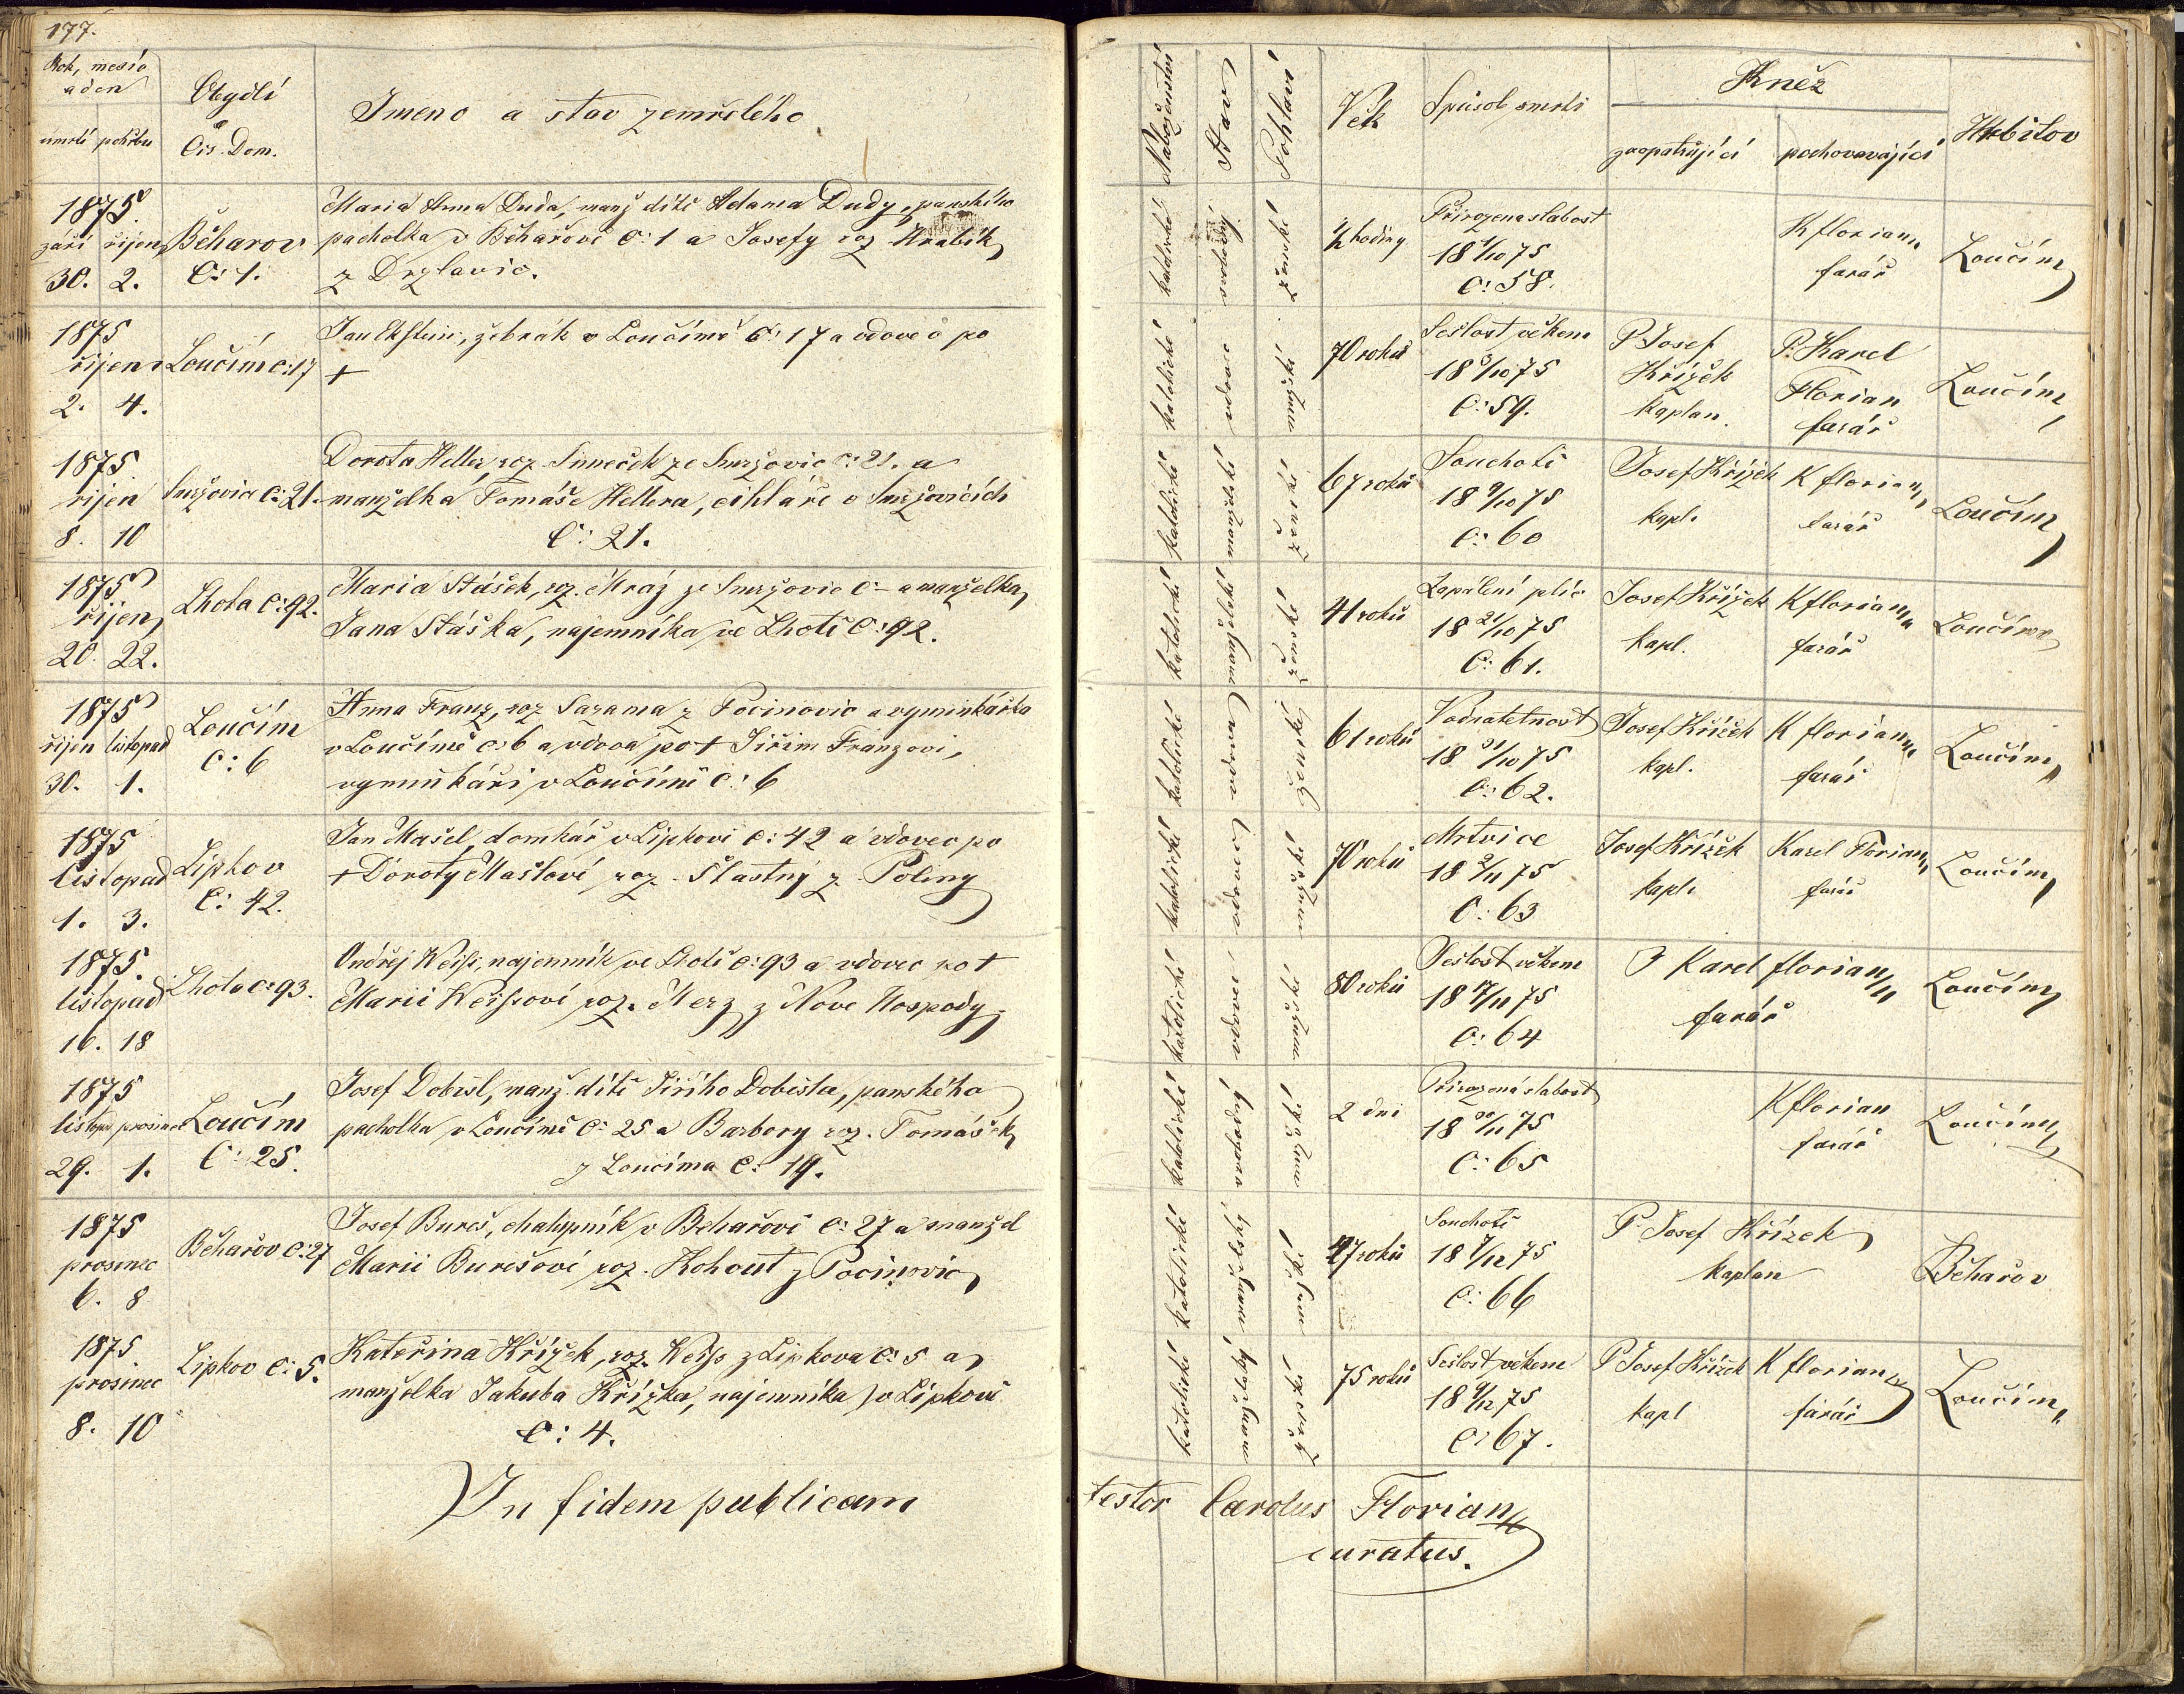 177.
Rok, mesíc
a den
úmrtí pohřbu
Obydlí
a
Čís. Dom.
Jmeno a stav zemřelého
1875.
září říjen
30. 2.
Běharov
C: 1.
Maria Anna Duda, manž dítě Adama Dudy, panského
pacholka v Běhařově C: 1 a Josefy roz Hrabík
z Drzlavic.
1875
říjen
2. 4.
Loučím C: 17
Jan Ekstein, žebrák v Loučímě C: 17 a vdovec po
+
1875.
říjen
8. 10
Smržovic C: 21.
Dorota Heller, roz. Simeček ze Smržovic C: 21. a
manželka Tomáše Hellera, cihláře v Smržovicích
C: 21.
1875
říjen
20. 22.
Lhota C: 92.
Maria Stášek, roz. Mráz ze Smržovic C – a manželka
Jana Stáška, najemníka ve Lhotě C: 92.
1875
říjen listopad
30. 1.
Loučím
C: 6
Anna Franz, roz Sazama z Pocinovic a vyminkářka
v Loučímě C: 6 a vdova po + Jiřím Franzovi,
vyminkáři v Loučímě C: 6
1875
listopad
1. 3.
Lipkov
C: 42.
Jan Mašel, domkář v Lipkově C: 42 a vdovec po
+ Doroty Mašlové roz. Štastný z Poliny
1875.
listopad
16. 18
Lhota C: 93.
Ondřej Weiss, najemník ve Lhotě C: 93 a vdovec po +
Marii Weissové roz. Merz z Nove Hospody
1875
listopad prosinec
29. 1.
Loučím
C: 25.
Josef Dobisl, manž. dítě Jiřího Dobisla, panského
pacholka v Loučímě C: 25 a Barbory roz. Tomášek
z Loučíma C: 19.
1875
prosinec
6. 8
Běhařov C: 27
Josef Bureš, chalupník v Běhařově C: 27 a manžel
Marii Burešové roz. Kohout z Pocinovic
1875.
prosinec
8. 10
Lipkov C: 5.
Kateřina Křížek, roz. Weiss z Lipkova C: 5 a
manželka Jakuba Křížka, najemníka v Lipkově
C: 4.
In fidem publicam
Naboženství
Stav
Pohlaví
Věk
Spůsob smrti
Kněz
zaopatřující
pochovávající
Hřbitov
katolické
svobodý
ženské
½ hodiny
Přirozena slabost
18 1/10 75
C: 58.
K florian
farář
Loučím
katolické
vdovec
mužské
70 roků
Sešlost věkem
18 3/10 75
C: 59.
P Josef
Křížek
kaplan.
P. Karel
Florian
farář
Loučím
katolické
manželské
ženské
67 roků
Souchotě
18 9/10 75
C: 60
Josef Křížek
kapl.
K florian
farář
Loučím
katolické
manželské
ženské
41 roků
Zapálení plic
18 21/10 75
C: 61.
Josef Křížek
kapl.
K florian
farář
Loučím
katolické
vdova
ženské
61 roků
Vodnatetnost
18 31/10 75
C: 62.
Josef Křížek
kapl.
K florian
farář
Loučím
katolické
vdovec
mužské
70 roků
Mrtvice
18 2/11 75
C: 63
Josef Křížek
kapl.
Karel Florian
farář
Loučím
katolické
vdovec
mužské
80 roků
Sešlost věkem
18 17/11 75
C: 64
P Karel florian
farář
Loučím
katolické
svobodný
mužské
2 dni
Přirozená slabost
18 30/11 75
C: 65
K florian
farář
Loučím
katolické
manželský
mužské
47 roků
Souchotě
18 7/12 75
C: 66
P. Josef Křížek
kaplan
Běhařov
katolické
manželský
ženské
75 roků
Sešlost věkem
18 9/12 75
C: 67.
P Josef Křížek
kapl
K florian
farář
Loučím
testor Carolus Florian
curatus.